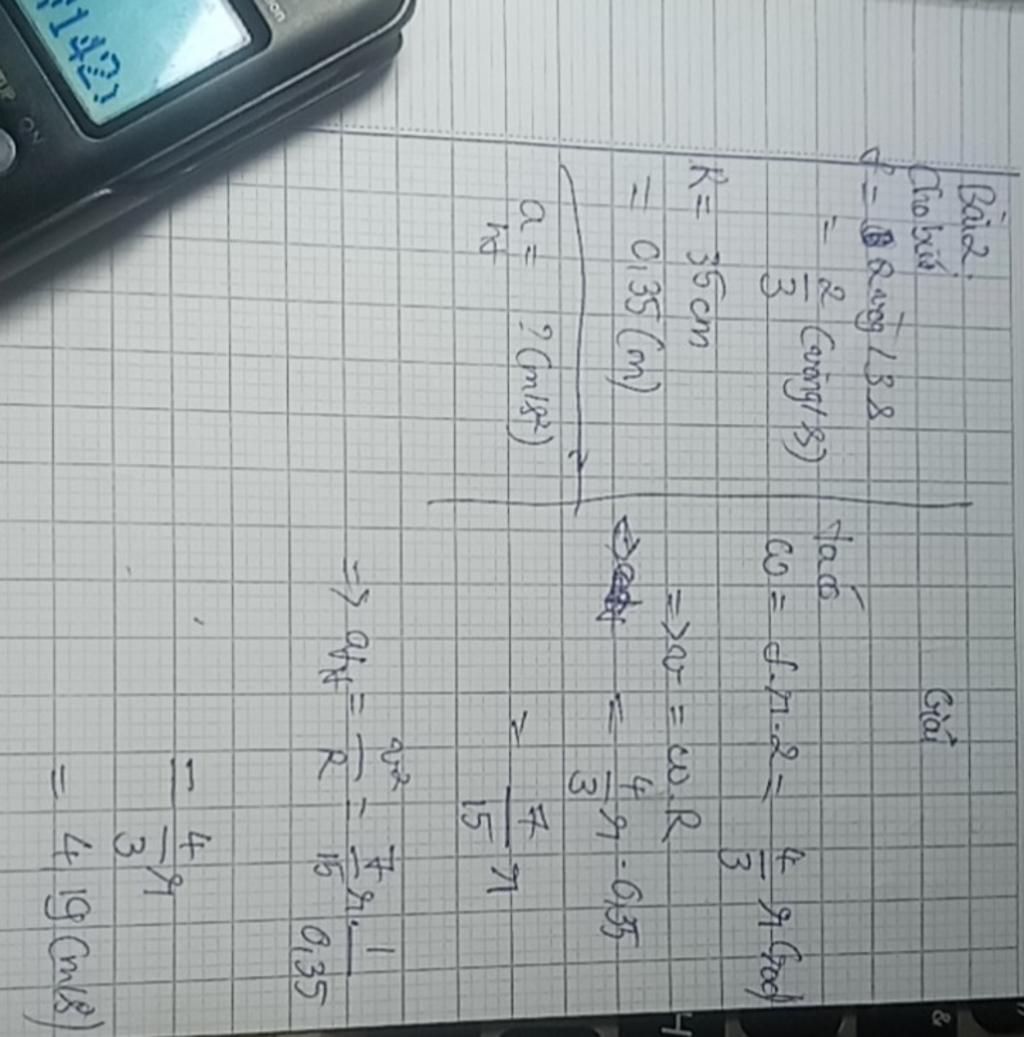 Bài 2:
Cho biết
f = 2 vòng / 3 s
= 2/3 (vòng/s)
R = 35 cm
= 0,35 (m)
a ht = ? (m/s²)
Giải
Ta có
ω = f.π.2 = 4/3 π (rad
=> v = ω.R
= 4/3 π . 0,35
= 7/15 π
=> a ht = v²/R = 7/15 π . 1/0,35
= 4/3 π
= 4,19 (m/s)
142
ON